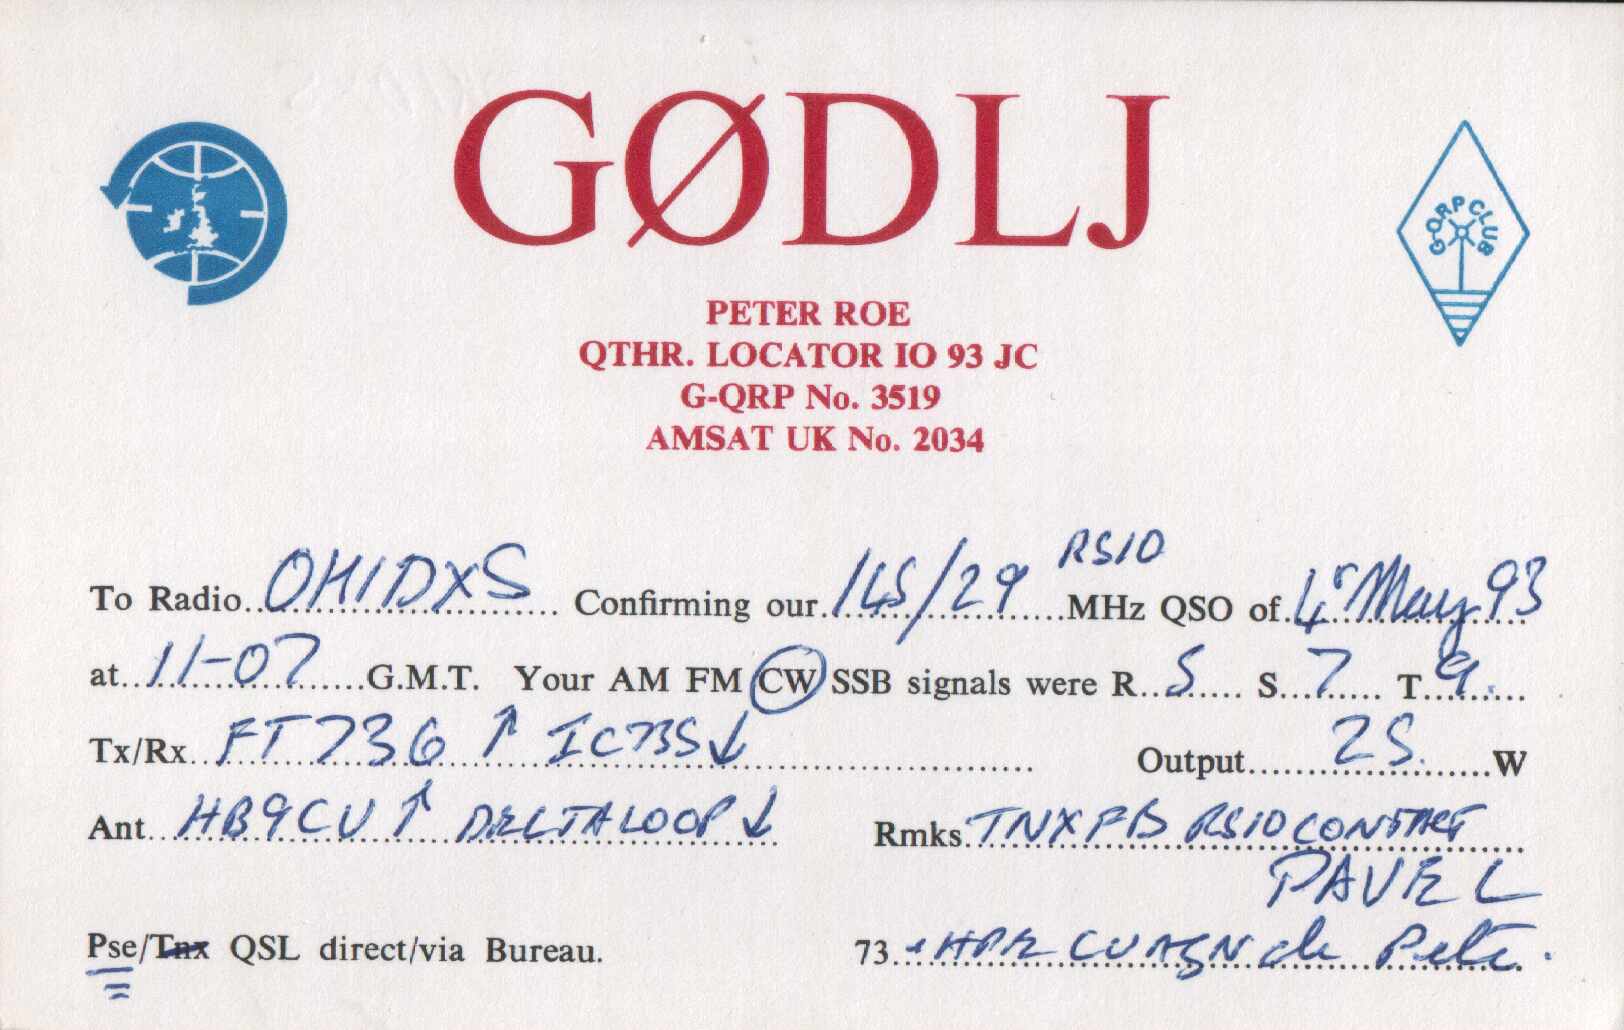 GØDLJ
G-QRP CLUB
PETER ROE
QTHR. LOCATOR IO 93 JC
G-QRP No. 3519
AMSAT UK No. 2034
To Radio OH1DXS Confirming our 145/29 RS10 MHz QSO of 4r May 93
at 11-07 G.M.T. Your AM FM CW SSB signals were R 5 S 7 T 9.
Tx/Rx FT736 ↑ IC735 ↓ Output 25 W
Ant HB9CV ↑ DELTA LOOP ↓ Rmks TNX FB RS10 CONTACT
PAVEL
Pse/Tnx QSL direct/via Bureau. 73 + HPE CU AGN de Pete.